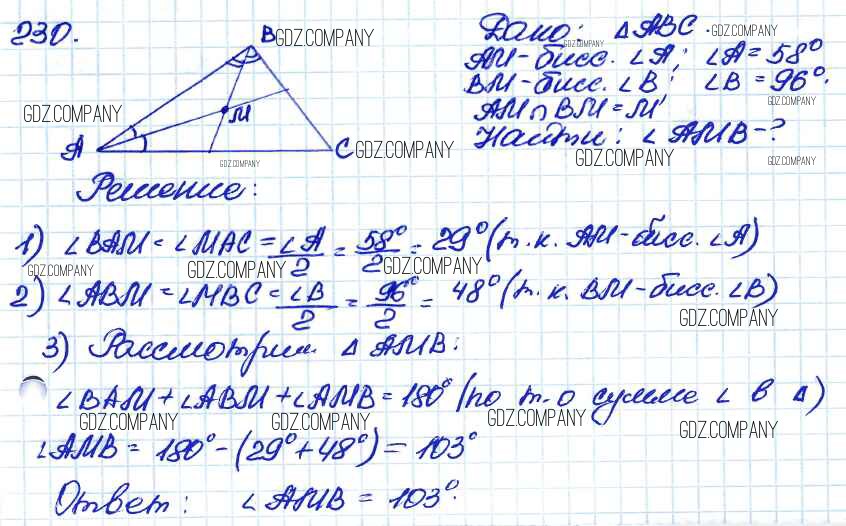 230.
B GDZ.COMPANY
Дано: △ABC. GDZ.COMPANY
GDZ.COMPANY
AM-бисс. ∠A; ∠A=58°
BM-бисс. ∠B; ∠B=96°.
GDZ.COMPANY
GDZ.COMPANY
M
AM∩BM=M
Найти: ∠AMB-?
A
C GDZ.COMPANY
GDZ.COMPANY
GDZ.COMPANY
GDZ.COMPANY
Решение:
1) ∠BAM = ∠MAC = ∠A/2 = 58°/2 = 29° (т.к. AM-бисс. ∠A)
GDZ.COMPANY GDZ.COMPANY GDZ.COMPANY
2) ∠ABM = ∠MBC = ∠B/2 = 96°/2 = 48° (т.к. BM-бисс. ∠B)
GDZ.COMPANY
3) Рассмотрим △AMB:
∠BAM + ∠ABM + ∠AMB = 180° (по т. о сумме ∠ в △)
GDZ.COMPANY GDZ.COMPANY GDZ.COMPANY GDZ.COMPANY
∠AMB = 180° - (29° + 48°) = 103°
Ответ: ∠AMB = 103°.